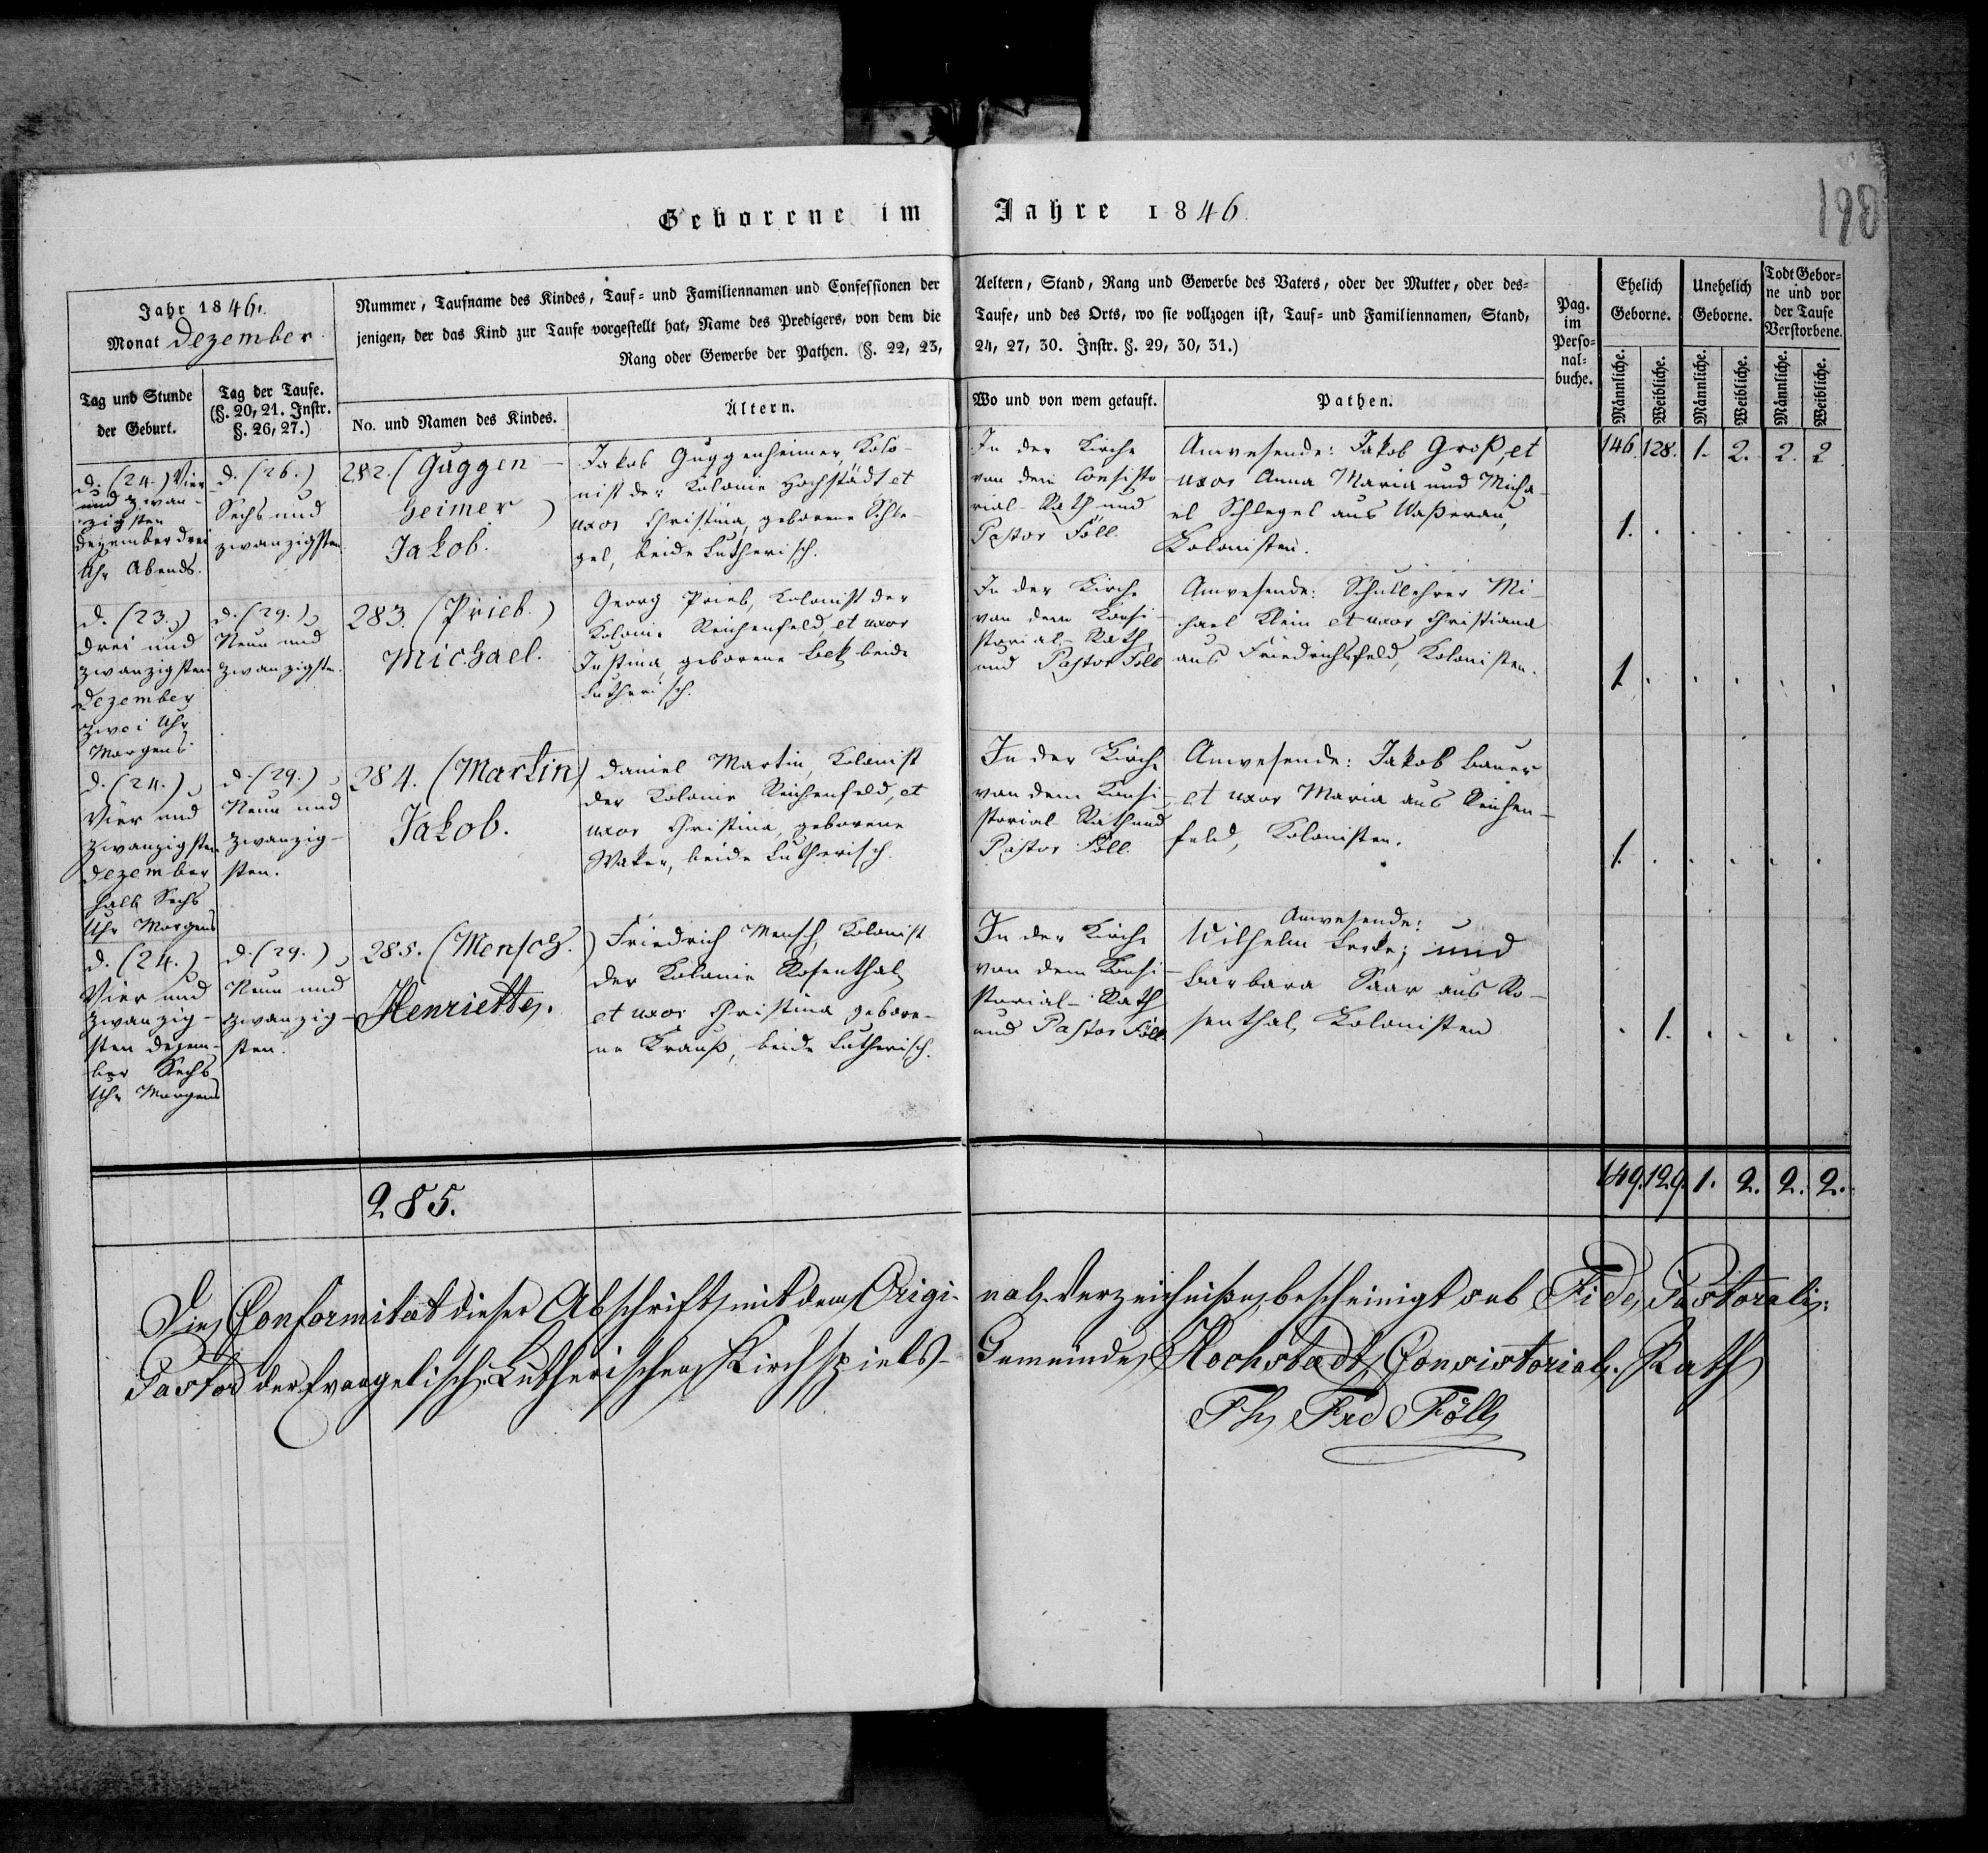 Geborene im Jahre 1846
190
Jahr 1846.
Monat Dezember
Nummer, Taufname des Kindes, Tauf- und Familiennamen und Confessionen der Aeltern, Stand, Rang und Gewerbe des Vaters, oder der Mutter, oder des-
jenigen, der das Kind zur Taufe vorgestellt hat, Name des Predigers, von dem die Taufe, und des Orts, wo sie vollzogen ist, Tauf- und Familiennamen, Stand,
Rang oder Gewerbe der Pathen. (§. 22, 23, 24, 27, 30. Instr. §. 29, 30, 31.)
Pag.
im
Perso-
nal-
buche.
Ehelich
Geborne.
Unehelich
Geborne.
Todt Gebor-
ne und vor
der Taufe
Verstorbene.
Männliche.
Weibliche.
Männliche.
Weibliche.
Männliche.
Weibliche.
Tag und Stunde
der Geburt.
Tag der Taufe.
(§. 20, 21. Instr.
§. 26, 27.)
No. und Namen des Kindes.
Ältern.
Wo und von wem getauft.
Pathen.
146. 128. 1. 2. 2. 2
d. (24.) Vier
und zwan-
zigsten
Dezember drei
Uhr Abends.
d. (26.)
Sechs und
zwanzigsten
282. (Guggen-
heimer)
Jakob.
Jakob Guggenheimer, Kolo-
nist der Kolonie Hochstädt et
uxor Christina, geborene Schle-
gel, beide Lutherisch.
In der Kirche
von dem Consisto
rial-Rath und
Pastor Föll.
Anwesende: Jakob Groß, et
uxor Anna Maria und Micha-
el Schlegel aus Waßerau,
Kolonisten.
1. . . . . .
d. (23.)
drei und
zwanzigsten
Dezember
zwei Uhr
Morgens.
d. (29.)
Neun und
zwanzigsten.
283. (Prieb.)
Michael.
Georg Prieb, Kolonist der
Kolonie Reichenfeld, et uxor
Justina, geborene Bek, beide
Lutherisch.
In der Kirche
von dem Konsi-
storial-Rath
und Pastor Föll
Anwesende: Schullehrer Mi-
chael Klein et uxor Christiana
aus Friedrichsfeld, Kolonisten.
1. . . . . .
d. (24.)
Vier und
zwanzigsten
Dezember
halb Sechs
Uhr Morgens
d. (29.)
Neun und
zwanzig-
sten.
284. (Martin)
Jakob.
Daniel Martin, Kolonist
der Kolonie Reichenfeld, et
uxor Christina, geborene
Waker, beide Lutherisch.
In der Kirche
von dem Konsi-
storial-Rath und
Pastor Föll.
Anwesende: Jakob Bauer
et uxor Maria aus Reichen-
feld, Kolonisten.
1. . . . . .
d. (24.)
Vier und
zwanzig-
sten Dezem-
ber Sechs
Uhr Morgens
d. (29.)
Neun und
zwanzig-
sten.
285. (Mensch.)
Henriette.
Friedrich Mensch, Kolonist
der Kolonie Rosenthal
et uxor Christina gebore-
ne Krauß, beide Lutherisch.
In der Kirche
von dem Konsi-
storial-Rath
und Pastor Föll.
Anwesende:
Wilhelm und
Barbara Saar aus Ro-
senthal, Kolonisten
. 1. . . . .
285.
149. 129. 1. 2. 2. 2.
Die Conformität dieser Abschrift mit dem Origi-nal-Verzeichniße, bescheinigt sub Fide Pastorali:
Pastor der Evangelisch-Lutherischen Kirchspiels-Gemeinde Hochstadt, Consistorial-Rath
Frd Föll